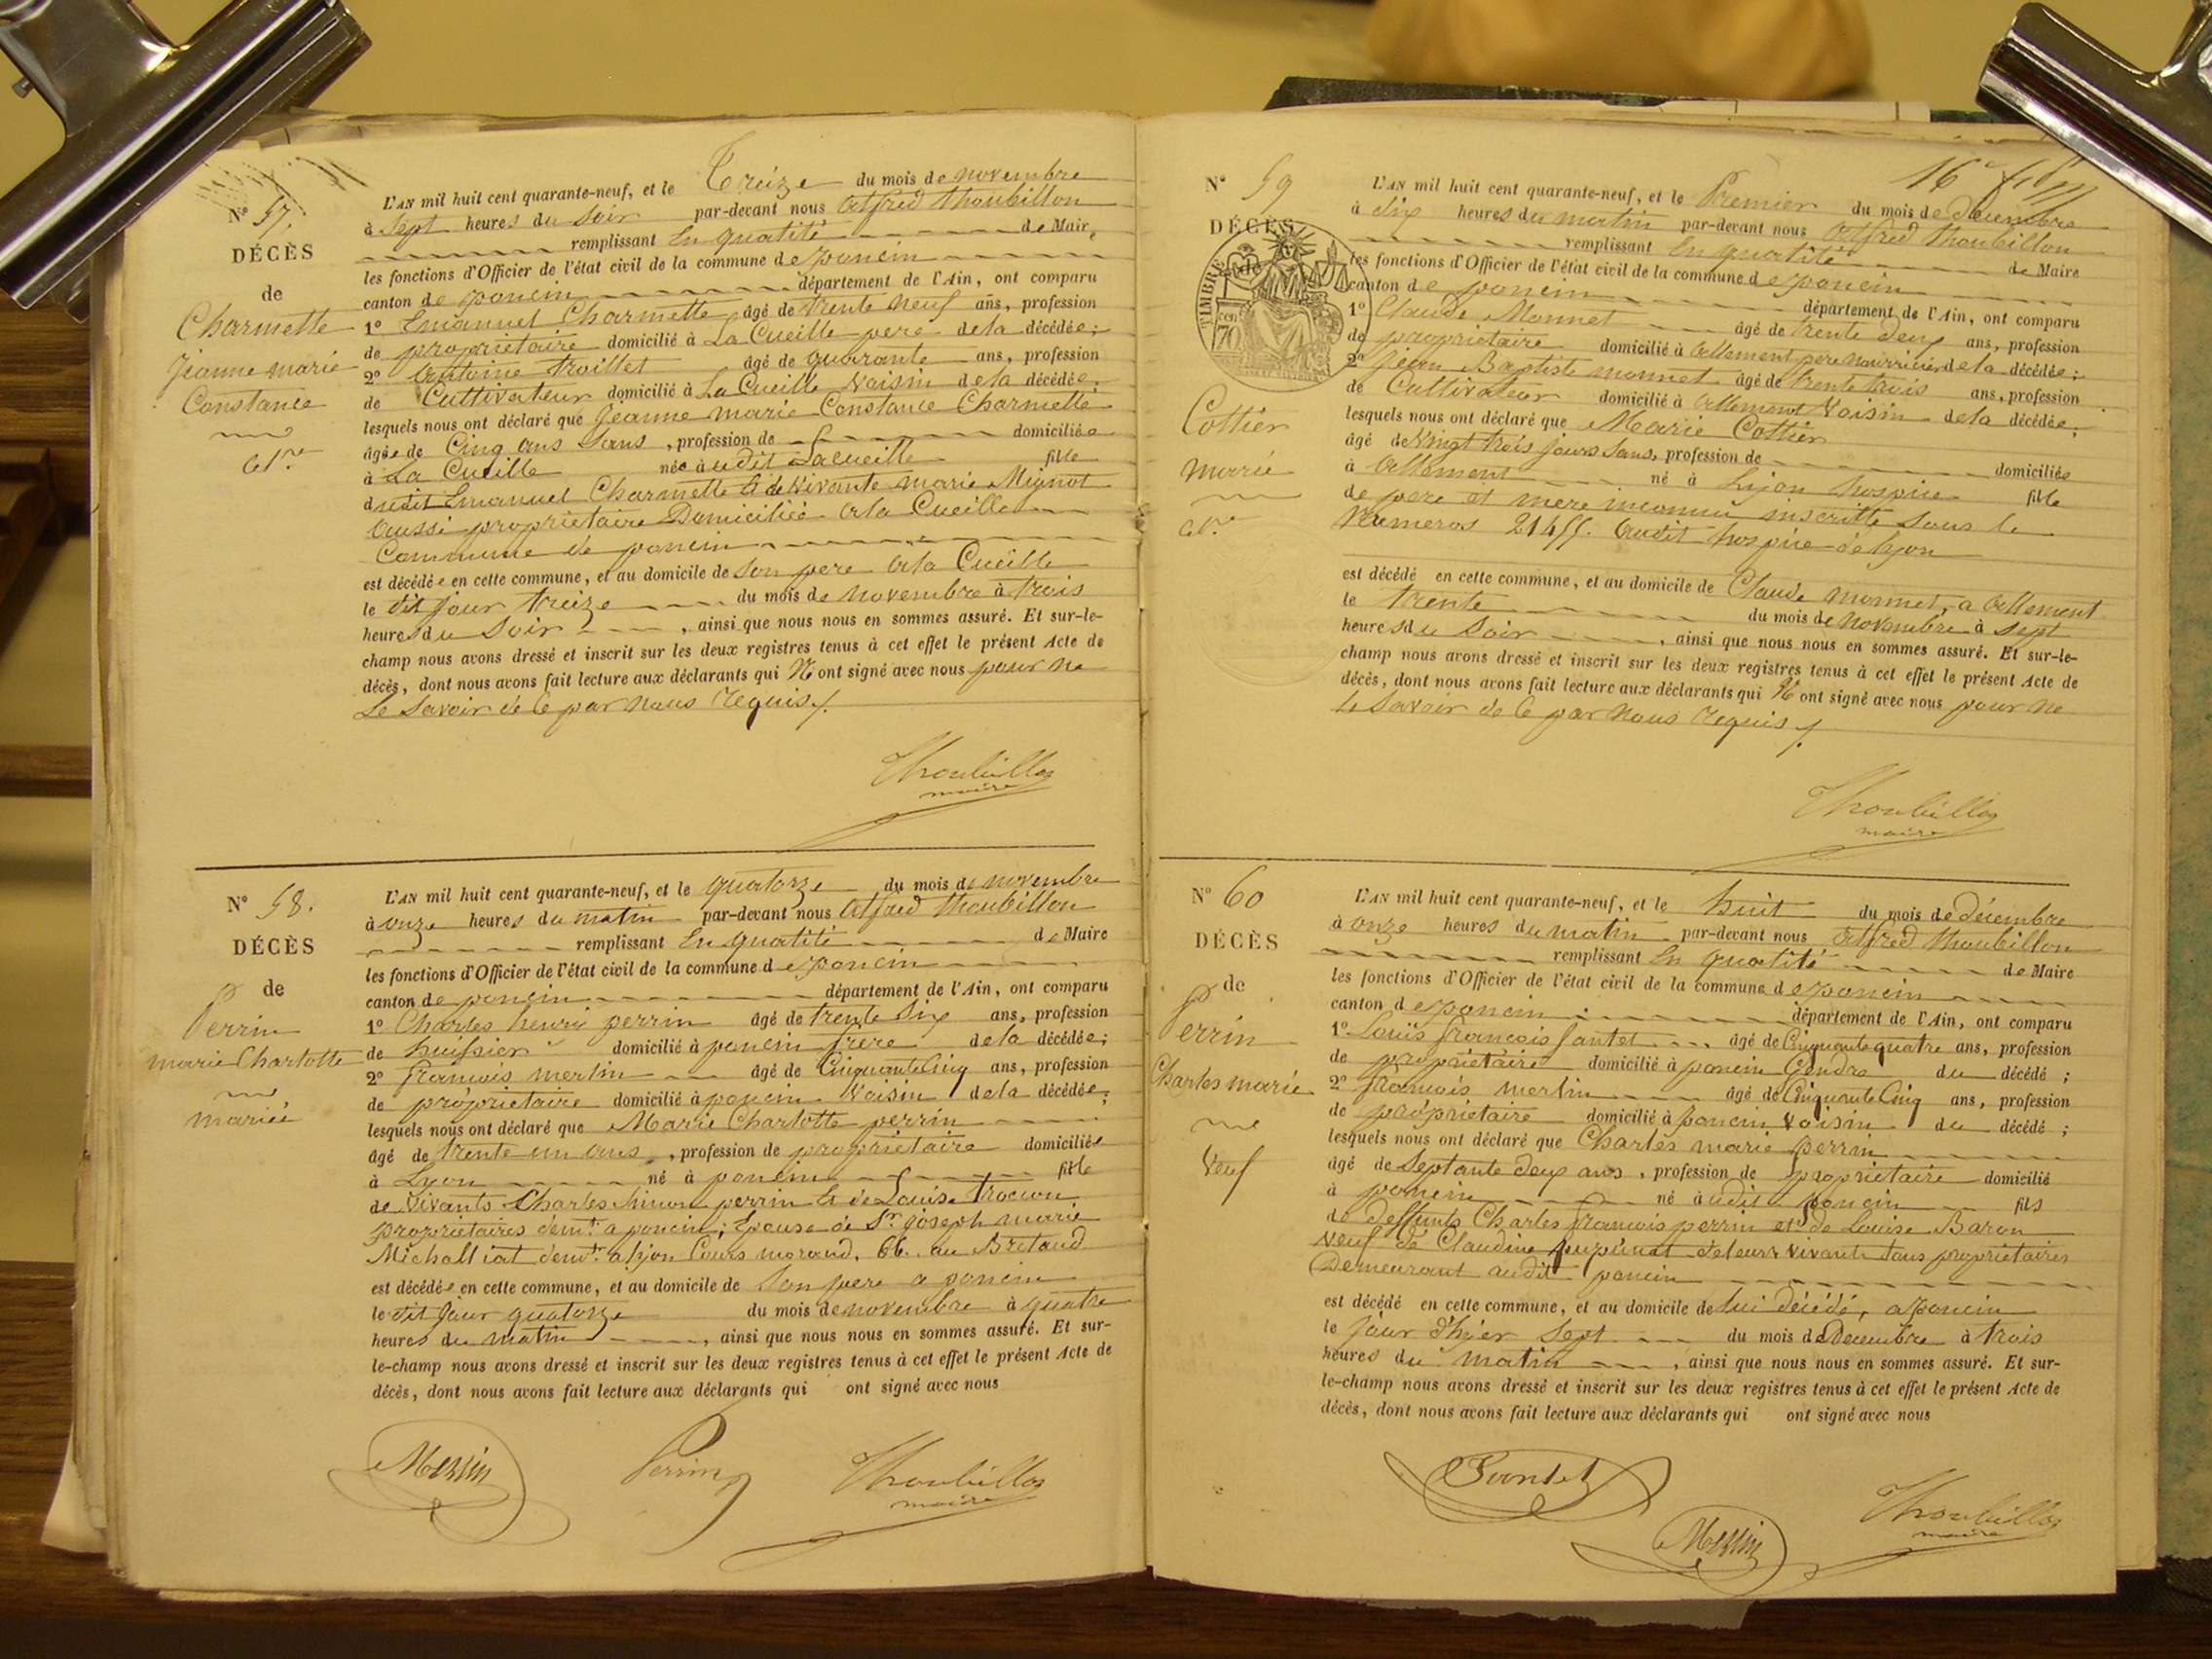 N° 57.
DÉCÈS
de
Charmette
Jeanne marie
Constance
L'AN mil huit cent quarante-neuf, et le Treize du mois de novembre
à Sept heures du Soir par-devant nous Alfred thoubillon
remplissant En qualité de Maire
les fonctions d'Officier de l'état civil de la commune de poncin
canton de poncin département de l'Ain, ont comparu
1° Emanuel Charmette âgé de trente neuf ans, profession
de propriétaire domicilié à La Cueille pere de la décédée;
2° Antoine troillet âgé de quarante ans, profession
de Cultivateur domicilié à La Cueille Voisin de la décédée;
lesquels nous ont déclaré que Jeanne marie Constance Charmette
âgée de Cinq ans Sans, profession de domiciliée
à La Cueille née à udit Lacueille fille
dudit Emanuel Charmette & de vivante marie Mignot
Aussi propriétaire Domiciliée Ala Cueille
Commune de poncin
est décédée en cette commune, et au domicile de Son pere Ala Cueille
le dit Jour treize du mois de novembre à trois
heures du Soir, ainsi que nous nous en sommes assuré. Et sur-le-
champ nous avons dressé et inscrit sur les deux registres tenus à cet effet le présent Acte de
décès, dont nous avons fait lecture aux déclarants qui N'ont signé avec nous pour ne
Le Savoir de Ce par nous requis /.
Thoubillon
maire
N° 58.
DÉCÈS
de
Perrin
marie Charlotte
mariée
L'AN mil huit cent quarante-neuf, et le quatorze du mois de novembre
à onze heures du matin par-devant nous Alfred thoubillon
remplissant En qualité de Maire
les fonctions d'Officier de l'état civil de la commune de poncin
canton de poncin département de l'Ain, ont comparu
1° Charles henri perrin âgé de trente Six ans, profession
de huissier domicilié à poncin frère de la décédée;
2° françois merlin âgé de Cinquante Cinq ans, profession
de propriétaire domicilié à poncin Voisin de la décédée;
lesquels nous ont déclaré que Marie Charlotte perrin
âgé de trente un ans, profession de propriétaire domiciliée
à Lyon né à poncin fille
de vivants Charles Simon perrin & de Louise trocon
propriétaires demt. a poncin; Epouse de Sr. joseph marie
Michalliat demt. a lyon Cours morand, 66. au Bretaud
est décédée en cette commune, et au domicile de Son pere a poncin
le dit Jour quatorze du mois de novembre à quatre
heures du matin, ainsi que nous nous en sommes assuré. Et sur-
le-champ nous avons dressé et inscrit sur les deux registres tenus à cet effet le présent Acte de
décès, dont nous avons fait lecture aux déclarants qui ont signé avec nous
Merlin Perrin Thoubillon
maire
N° 59
DÉCÈS
TIMBRE
70
Cottier
marie
L'AN mil huit cent quarante-neuf, et le Premier du mois de Décembre
à Six heures du matin par-devant nous Alfred thoubillon
remplissant En qualité de Maire
les fonctions d'Officier de l'état civil de la commune de poncin
canton de poncin département de l'Ain, ont comparu
1° Claude Monnet âgé de trente deux ans, profession
de propriétaire domicilié à Allement pere nourricier de la décédée;
2° jean Baptiste monnet âgé de trente trois ans, profession
de Cultivateur domicilié à Allement Voisin de la décédée;
lesquels nous ont déclaré que Marie Cottier
âgé de Vingt trois jours Sans, profession de domiciliée
à Allement né à Lyon hospice fille
de pere et mere inconnu inscritte Sous le
Numeros 21455. Audit hospice de lyon
est décédé en cette commune, et au domicile de Claude monnet, a Allement
le trente du mois de novembre à sept
heures du Soir, ainsi que nous nous en sommes assuré. Et sur-le-
champ nous avons dressé et inscrit sur les deux registres tenus à cet effet le présent Acte de
décès, dont nous avons fait lecture aux déclarants qui N'ont signé avec nous pour ne
le Savoir de Ce par nous requis /.
Thoubillon
maire
N° 60
DÉCÈS
de
Perrin
Charles marie
Veuf
L'AN mil huit cent quarante-neuf, et le huit du mois de décembre
à onze heures du matin par-devant nous Alfred thoubillon
remplissant En qualité de Maire
les fonctions d'Officier de l'état civil de la commune de poncin
canton de poncin département de l'Ain, ont comparu
1° Louis françois Santet âgé de Cinquante quatre ans, profession
de propriétaire domicilié à poncin Gendre du décédé;
2° françois merlin âgé de Cinquante Cinq ans, profession
de propriétaire domicilié à poncin Voisin du décédé;
lesquels nous ont déclaré que Charles marie perrin
âgé de Septante deux ans, profession de propriétaire domicilié
à poncin né à udit poncin fils
de deffunts Charles françois perrin et de Louise Baron
Veuf de Claudine de leurs vivants tous propriétaires
Demeurant audit poncin
est décédé en cette commune, et au domicile de lui décédé, a poncin
le jour d'hier Sept du mois de Décembre à trois
heures du matin, ainsi que nous nous en sommes assuré. Et sur-
le-champ nous avons dressé et inscrit sur les deux registres tenus à cet effet le présent Acte de
décès, dont nous avons fait lecture aux déclarants qui ont signé avec nous
Santet
Merlin
Thoubillon
maire